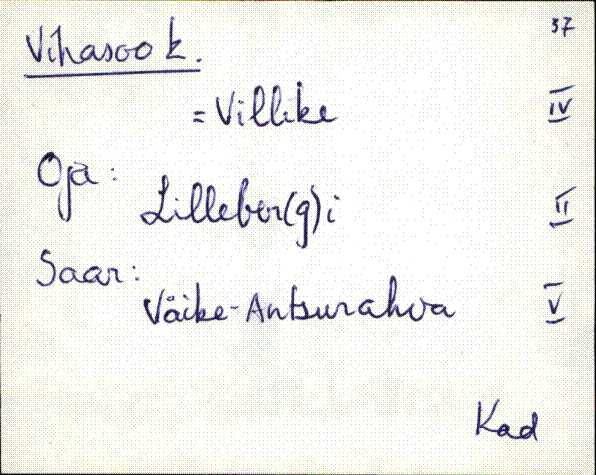 37
Vihasoo k.
= Villike IV
Oja:
Lilleber(g)i II
Saar:
Väike-Antsurahva V
Kad